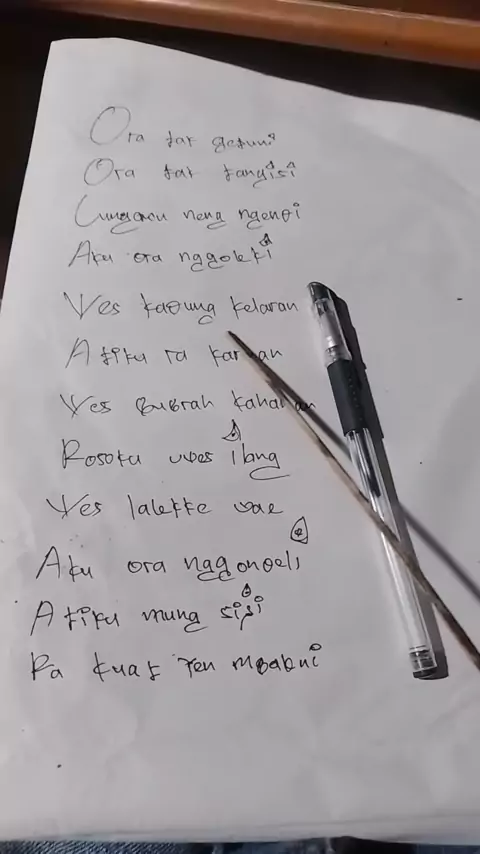 Ora tak getuni
Ora tak tangisi
Lungamu neng ngendi
Aku ora nggoleki
Wes kadung kelaran
Atiku ra karuan
Wes bubrah kahanan
Rosoku wes ilang
Wes lalekke wae
Aku ora nggondeli
Atiku mung siji
Ra kuat yen mbabni